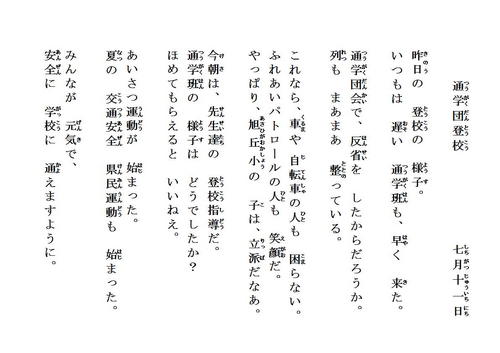 通学団登校　　七月十一日
昨日の　登校の　様子。
いつもは　遅い　通学班も、早く　来た。
通学団会で、反省を　したからだろうか。
列も　まあまあ　整っている。
これなら、車や　自転車の人も　困らない。
ふれあいパトロールの人も　笑顔だ。
やっぱり、旭丘小の　子は、立派だなあ。
今朝は、先生達の　登校指導だ。
通学班の　様子は　どうでしたか？
ほめてもらえると　いいねえ。
あいさつ運動が　始まった。
夏の　交通安全　県民運動も　始まった。
みんなが　元気で、
安全に　学校に　通えますように。